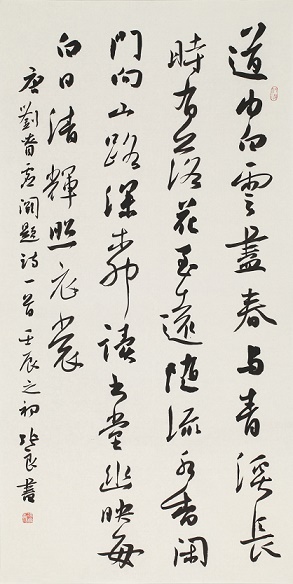 道由白雲盡春与青溪長
時有落花至遠随流水香闲
門向山路深柳讀书堂幽映每
白日清輝照衣裳
唐劉昚虚闕題诗一首 壬辰之初 张良書